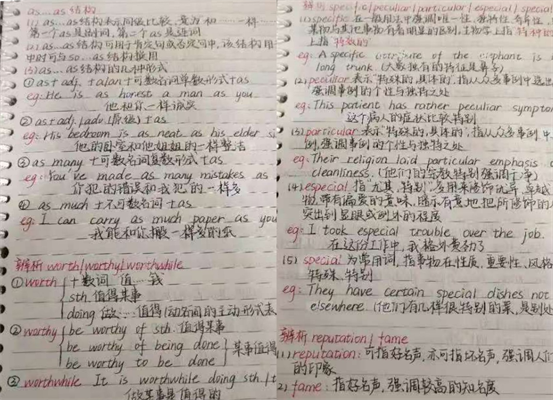 as...as结构
(1) as...as结构表示同级比较,意为"和……一样
第一个as是副词,第二个as是连词
(2) as...as结构可用于肯定句或否定句中,该结构用
中时可与so...as结构换用
(3) as...as结构的几种形式
① as + adj. + a/an + 可数名词单数形式 + as
eg: He is as honest a man as you.
他和你一样诚实
② as + adj./adv.(原级) + as
eg: His bedroom is as neat as his elder s
他的卧室和他姐姐的一样整洁
③ as many + 可数名词复数形式 + as
eg: You've made as many mistakes as
你犯的错误和我犯的一样多
④ as much + 不可数名词 + as
eg: I can carry as much paper as you
我能和你搬一样多的纸
辨析 worth/worthy/worthwhile
① worth + 数词 值……钱
sth. 值得某事
doing 做……值得(动名词的主动形式表
② worthy be worthy of sth. 值得某事
be worthy of being done 某事值得
be worthy to be done
③ worthwhile It is worthwhile doing sth./t
做某事是值得的
辨析 specific/peculiar/particular/especial/special
(1) specific 在一般用法中强调唯一性、独特性、奇异性
某物与其它事物有着明显的区别,生物学上指"特种的
上指"特效的"
eg: A specific attribute of the elephant is
long trunk. (大象独有的特征是鼻子)
(2) peculiar 表示"特殊的,具体的",指从众多事例中选出
强调事例的个性与独特之处
eg: This patient has rather peculiar sympto
这个病人的症状比较特别
(3) particular 表示"特殊的,具体的",指从众多事例中
例,强调事例的个性与独特之处
eg: Their religion laid particular emphasis
cleanliness. (他们的宗教特别强调干净)
(4) especial 指"尤其,特别",多用来修饰优异、卓越
物,带有偏爱的意味,暗示有意地把所修饰的
突出到显眼或例外的程度
eg: I took especial trouble over the job.
在这份工作中,我格外费劲了
(5) special 为常用词,指事物在性质、重要性、风格
特殊、特别
eg: They have certain special dishes not
elsewhere. (他们有几样很特别的菜,是别处
辨析 reputation / fame
(1) reputation: 可指好名声,亦可指坏名声,强调人们
的印象
2) fame: 指好名声,强调较高的知名度